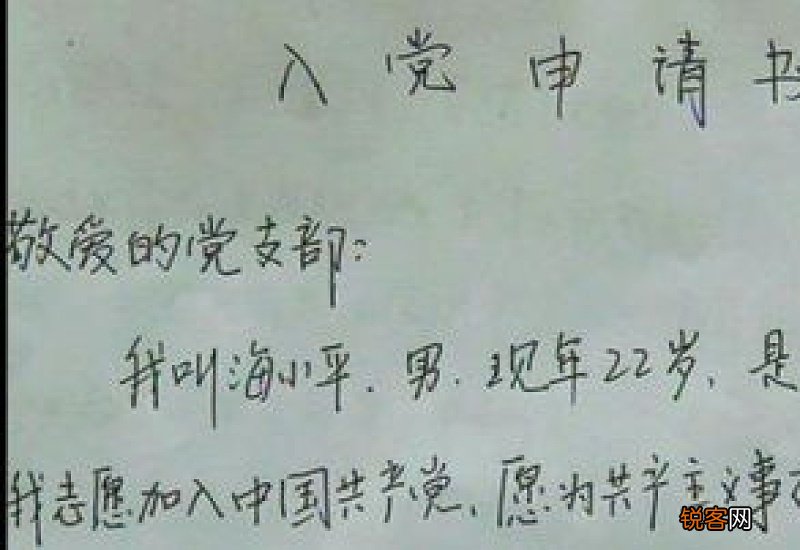 入党申请书
敬爱的党支部：
我叫海小平、男、现年22岁，是
我志愿加入中国共产党、愿为共产主义事
锐客网